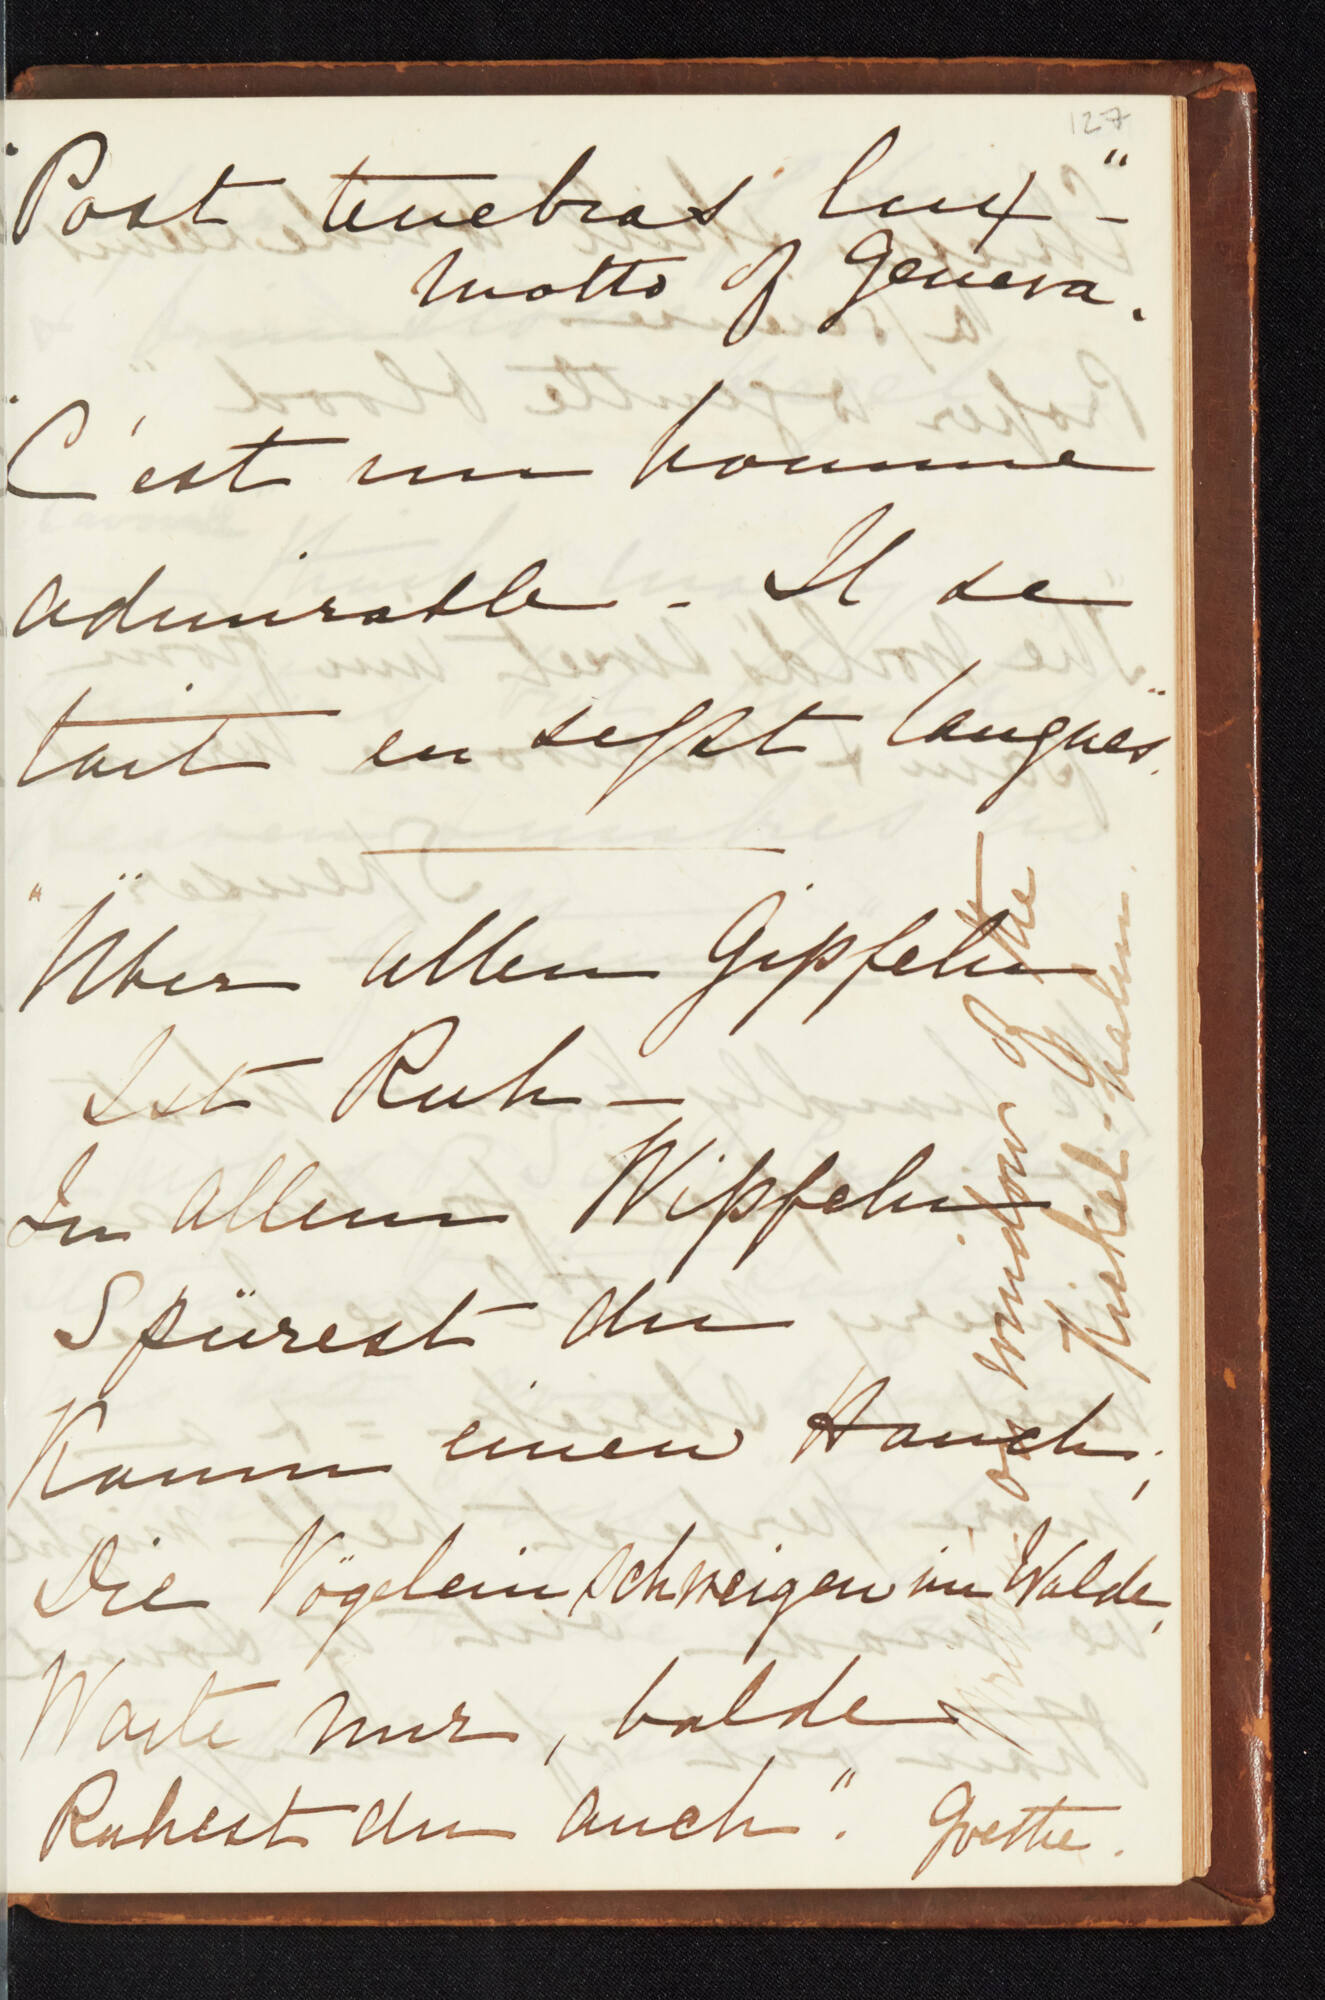 127
"Post tenebras lux" -
Motto of Geneva.
"C'est un homme
admirable - Il se
tait en sept langues".
"Über allen Gipfeln
Ist Ruh -
In allen Wipfeln
Spürest du
Kaum einen Hauch;
Die Vögelein schweigen im Walde,
Warte nur, balde
Ruhest du auch". Goethe.
on window of the
Kickel-hahn.